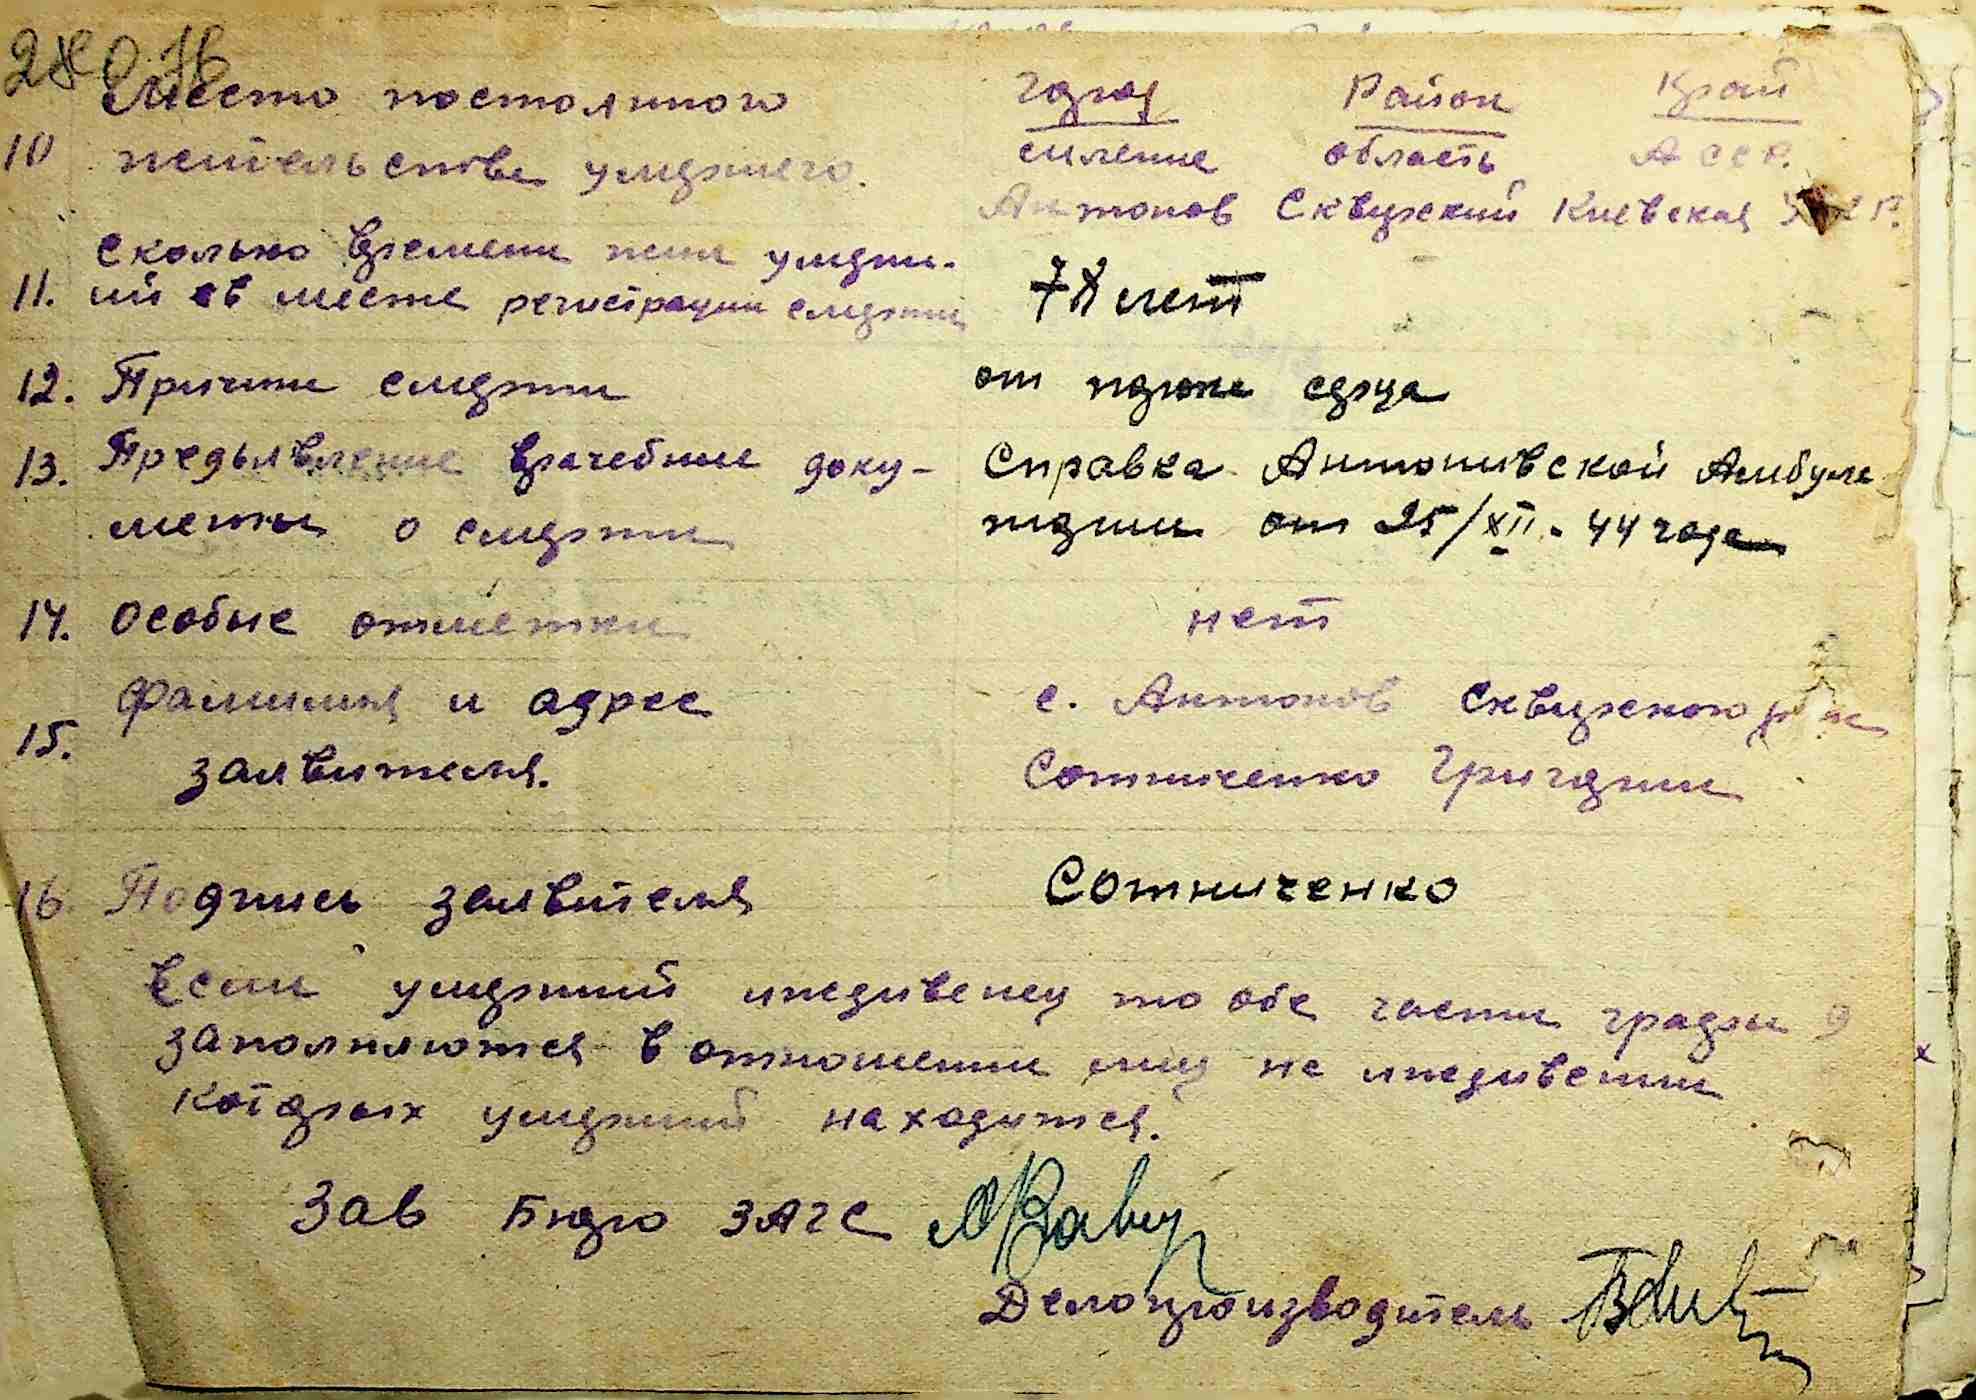 Место постоянного город Район Край
10 жительства умершего. селение область АССР.
Антонов Сквирский Киевская
сколько времени жил умерш-
11. ий в месте регистрации смерти лет
12. Причина смерти от порока серца
13. Предъявление врачебные доку- Справка Антоновской Амбула
менты о смерти тории от 25/XII. 44 года
14. Особые отметки нет
Фамилия и адрес с. Антонов Сквирского р-н
15. заявителя. Сотниченко Григорий
16. Подпись заявителя Сотниченко
Если умерший иждивенец то обе части графы 9
заполняются в отношении лиц на иждивении
которых умерший находится.
Зав Бюро ЗАГС
Делопроизводитель